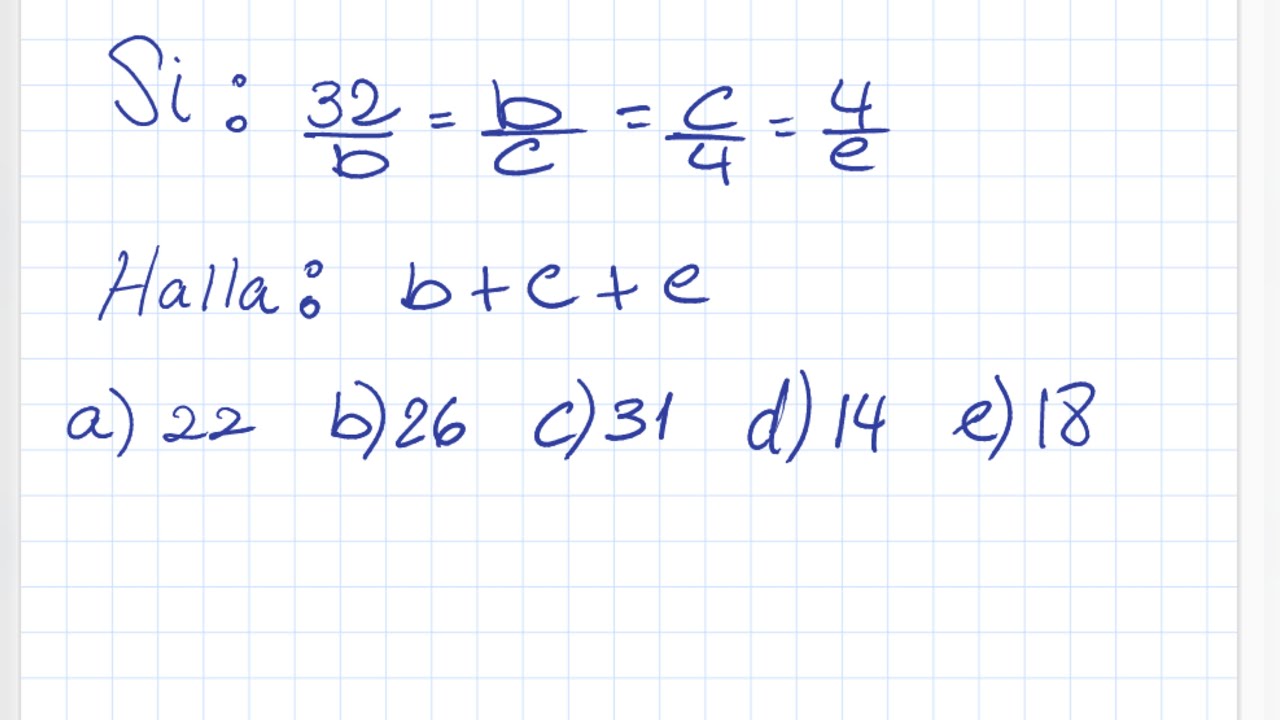 Si: 32/b = b/c = c/4 = 4/e
Halla: b+c+e
a) 22 b) 26 c) 31 d) 14 e) 18